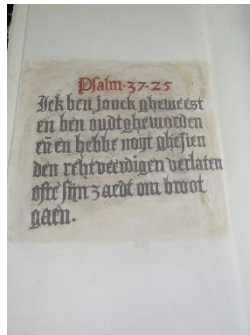 Psalm·37·25
Ick ben jonck gheweest
en ben oudt gheworden
en en hebbe noyt ghesien
den rehtveerdigen verlaten
ofte sijn zaedt om broot
gaen.